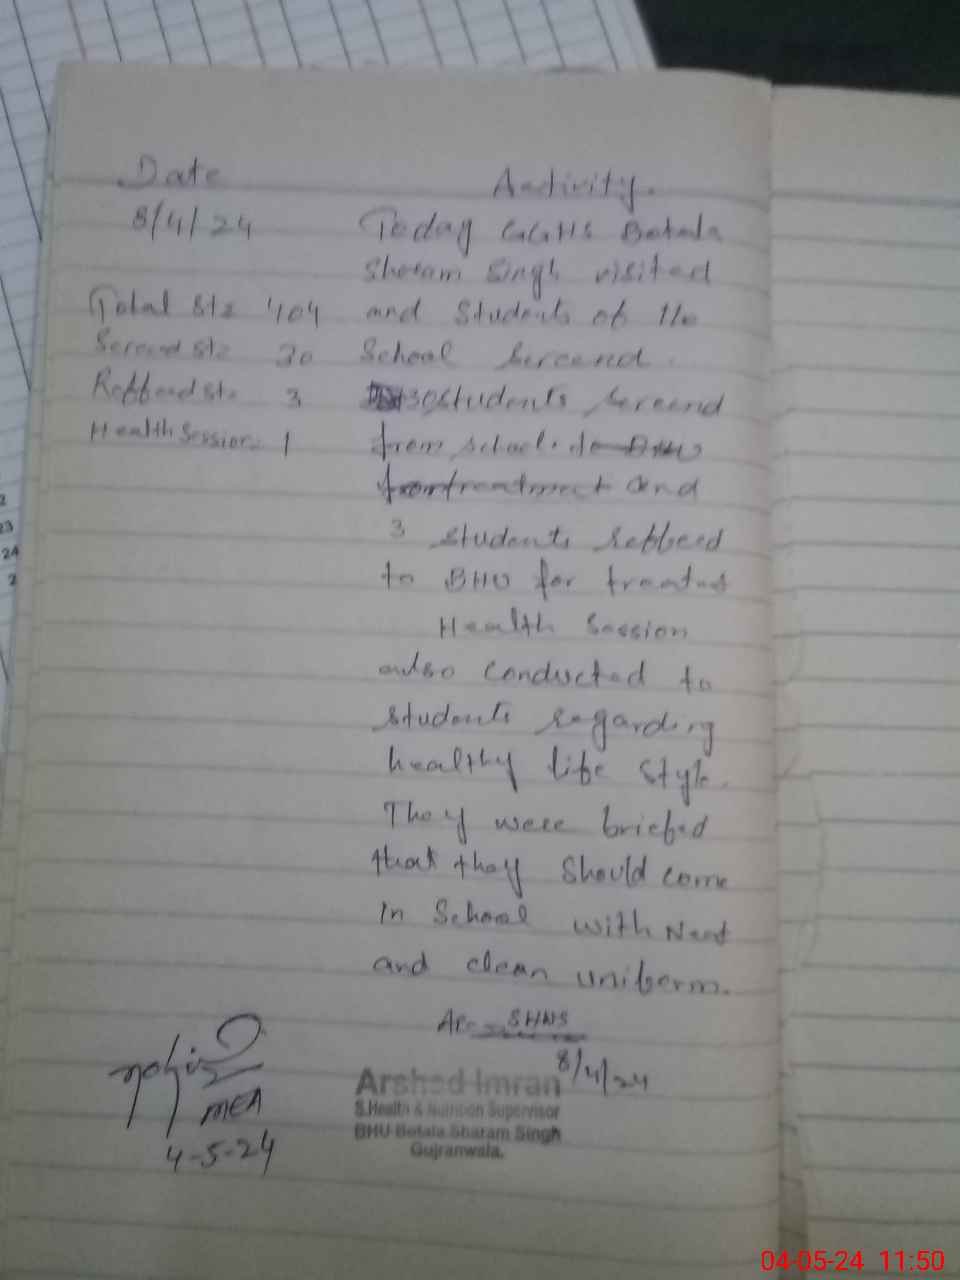 Date Activity.
8/4/24 Today GGHS Botala
Sharam Singh visited
Total Sts 104 and Students of the
Screend Sts 30 School Screend.
Reffeed Sts 3 30 students Screend
Health Session: 1 from school. to BHU
for treatment and
3 students reffeed
to BHU for treatmet
Health Session
also conducted to
students regarding
healthy life style.
They were briefed
that they should come
in School with Neat
and clean uniform.
SHNS
8/4/24
Arshad Imran
S.Health & Nutrition Supervisor
BHU Botala Sharam Singh
Gujranwala.
MEA
4-5-24
2
23
24
2
04-05-24 11:50